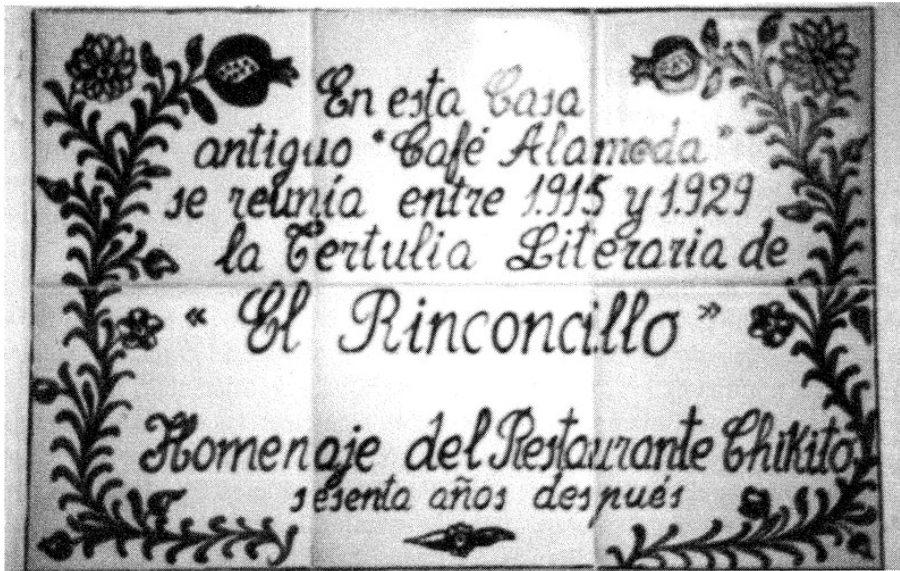 En esta Casa
antiguo "Café Alameda"
se reunía entre 1.915 y 1.929
la Tertulia Literaria de
« El Rinconcillo »
Homenaje del Restaurante Chikito
sesenta años después